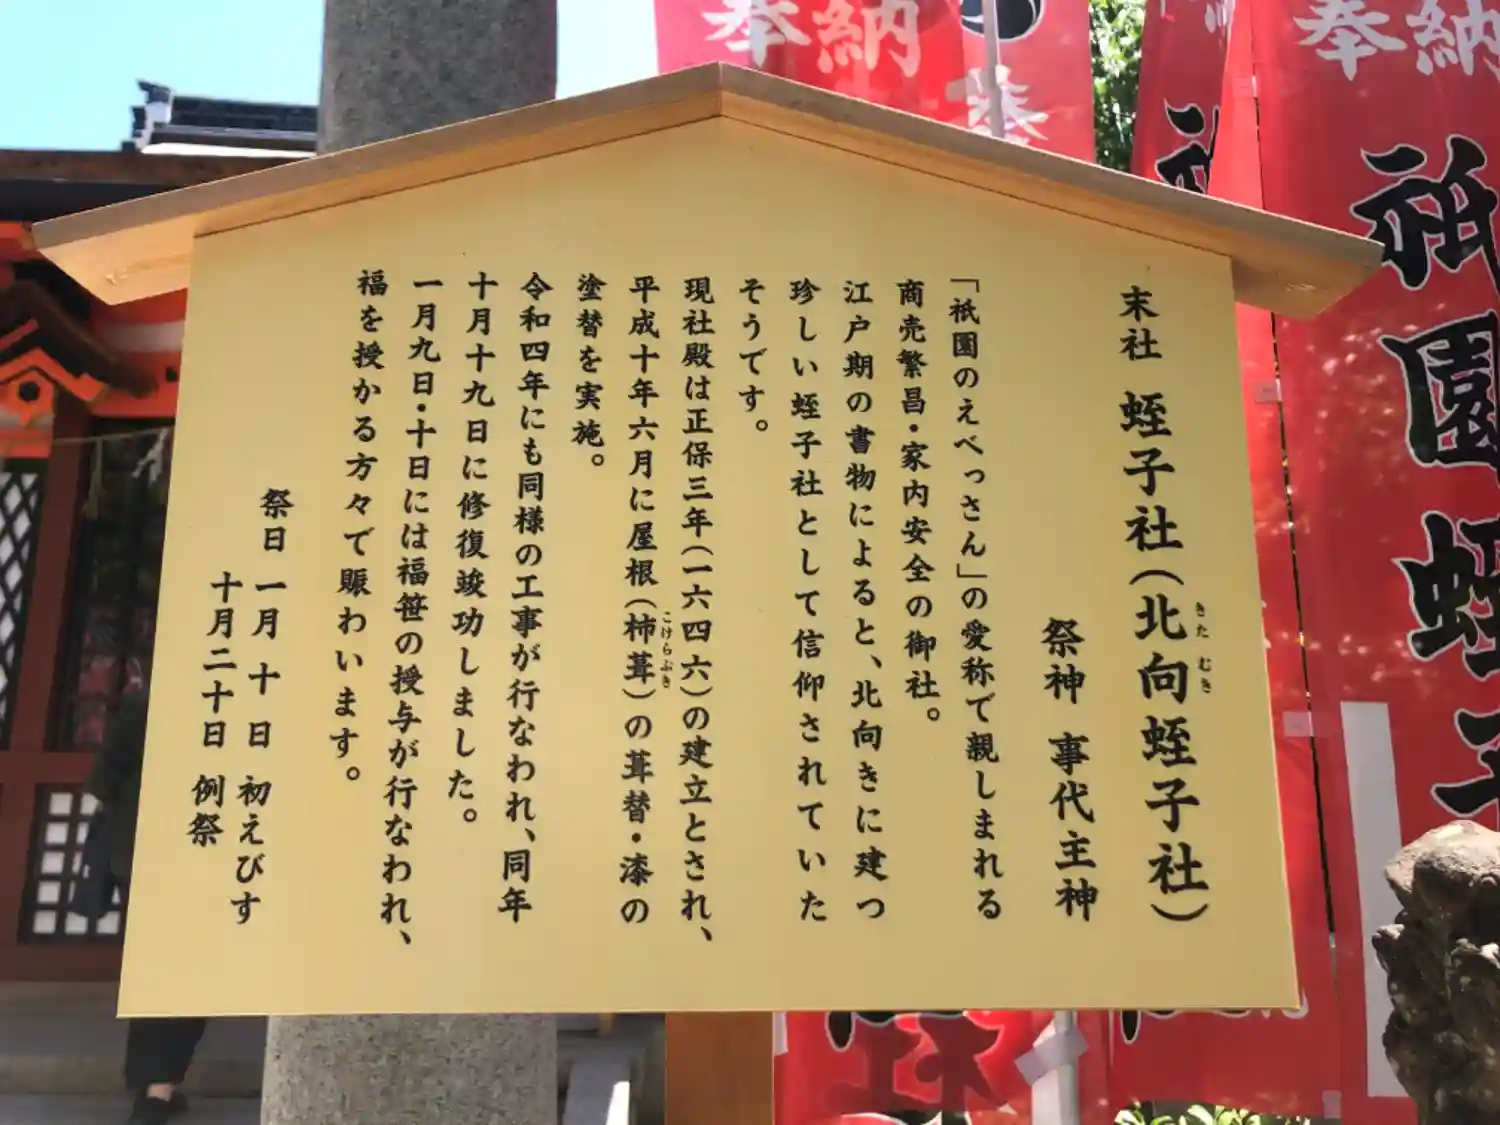 末社 蛭子社（北向蛭子社）
きた むき
祭神 事代主神
「祇園のえべっさん」の愛称で親しまれる
商売繁昌・家内安全の御社。
江戸期の書物によると、北向きに建つ
珍しい蛭子社として信仰されていた
そうです。
現社殿は正保三年（一六四六）の建立とされ、
平成十年六月に屋根（柿葺）の葺替・漆の
こけらぶき
塗替を実施。
令和四年にも同様の工事が行なわれ、同年
十月十九日に修復竣功しました。
一月九日・十日には福笹の授与が行なわれ、
福を授かる方々で賑わいます。
祭日 一月 十 日 初えびす
十月二十日 例祭
奉納
奉納
祇園蛭子